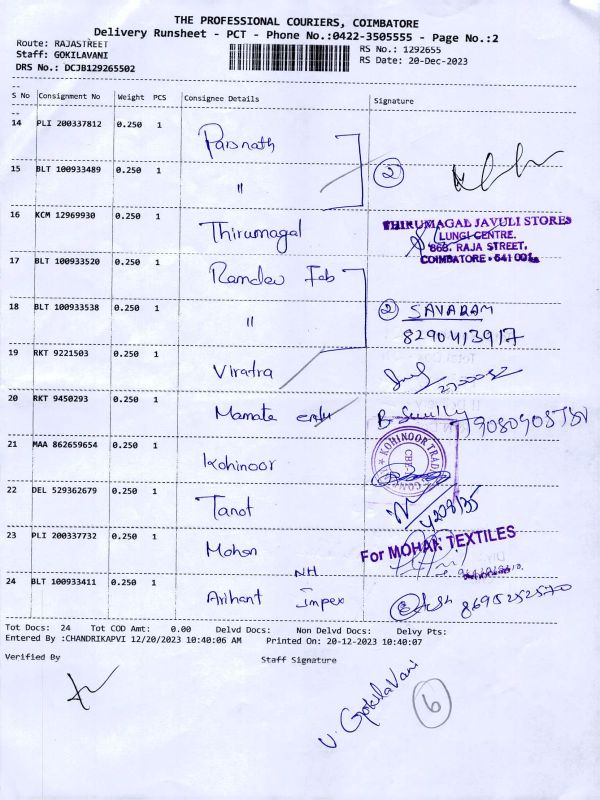 THE PROFESSIONAL COURIERS, COIMBATORE
Delivery Runsheet - PCT - Phone No.:0422-3505555 - Page No.:2
Route: RAJASTREET
Staff: GOKILAVANI
DRS No.: DCJB129265502
RS No.: 1292655
RS Date: 20-Dec-2023
S No Consignment No Weight PCS Consignee Details Signature
14 PLI 200337812 0.250 1 Parsnath
15 BLT 100933489 0.250 1 " 2
16 KCM 12969930 0.250 1 Thirumagal
THIRUMAGAL JAVULI STORES
LUNGI CENTRE.
868. RAJA STREET,
COIMBATORE - 641 001.
17 BLT 100933520 0.250 1 Ramdev Fab
18 BLT 100933538 0.250 1 " 2 SAVARAM
8290413917
19 RKT 9221503 0.250 1 Viratra
20 RKT 9450293 0.250 1 Mamata
21 MAA 862659654 0.250 1 Kohinoor
KOHINOOR TRAD
CBE
22 DEL 529362679 0.250 1 Tanot
23 PLI 200337732 0.250 1 Mohan
For MOHAN TEXTILES
NH
24 BLT 100933411 0.250 1 Arihant Impex 8695252570
Tot Docs: 24 Tot COD Amt: 0.00 Delvd Docs: Non Delvd Docs: Delvy Pts:
Entered By :CHANDRIKAPVI 12/20/2023 10:40:06 AM Printed On: 20-12-2023 10:40:07
Verified By Staff Signature
V. GokilaVani
6